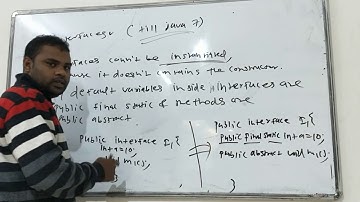 interfaces (till java 7)
interfaces can't be instantited,
it doesn't contains the constructor.
default variables inside interfaces are
public final static & methods are
public abstract.
public interface I1{
int a=10;
void m1();
public interface I1{
public final static int a=10;
public abstract void m1();
}